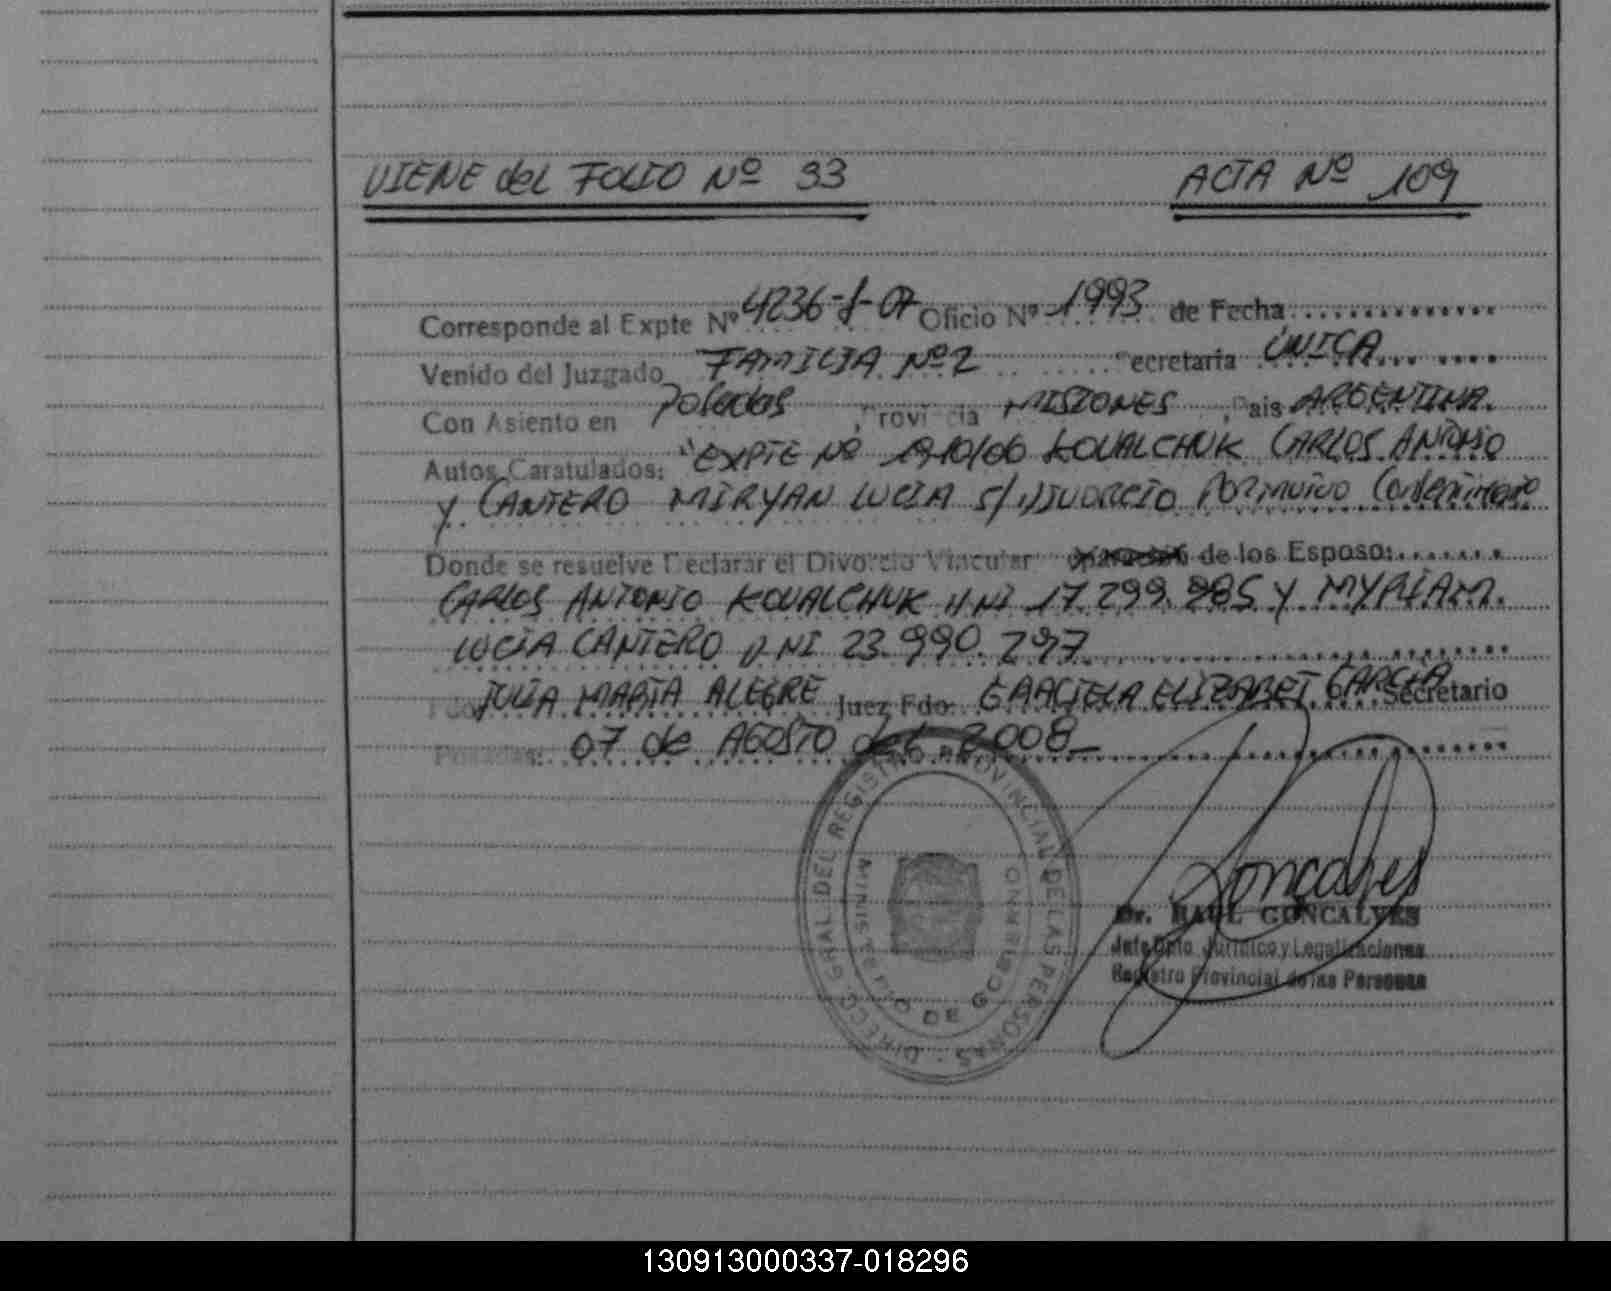 VIENE del FOLIO Nº 33
ACTA Nº 109
Corresponde al Expte Nº 4236-J-07 Oficio Nº 1993 de Fecha
Venido del Juzgado FAMILIA Nº 2 Secretaria ÚNICA
Con Asiento en Posadas, Provincia MISIONES, Pais ARGENTINA.
Autos Caratulados: "EXPTE Nº KOUALCHUK CARLOS ANTONIO
y CANTERO MIRYAN LUCIA S/ DIVORCIO POR MUTUO
Donde se resuelve Declarar el Divorcio Vincular de los Esposo:
CARLOS ANTONIO KOUALCHUK DNI 17.299. Y MYRIAM
LUCIA CANTERO DNI 23.990.297
Fdo. JULIA MARIA ALEGRE Juez Fdo. GRACIELA ELIZABET GARCIA Secretario
Posadas: 07 de AGOSTO del 2008
DIRECC. GRAL. DEL REGISTRO PROVINCIAL DE LAS PERSONAS
MINISTERIO DE GOBIERNO
Goncalves
Dr. RAUL GONCALVES
Jefe Dpto Juridico y Legalizaciones
Registro Provincial de las Personas
130913000337-018296